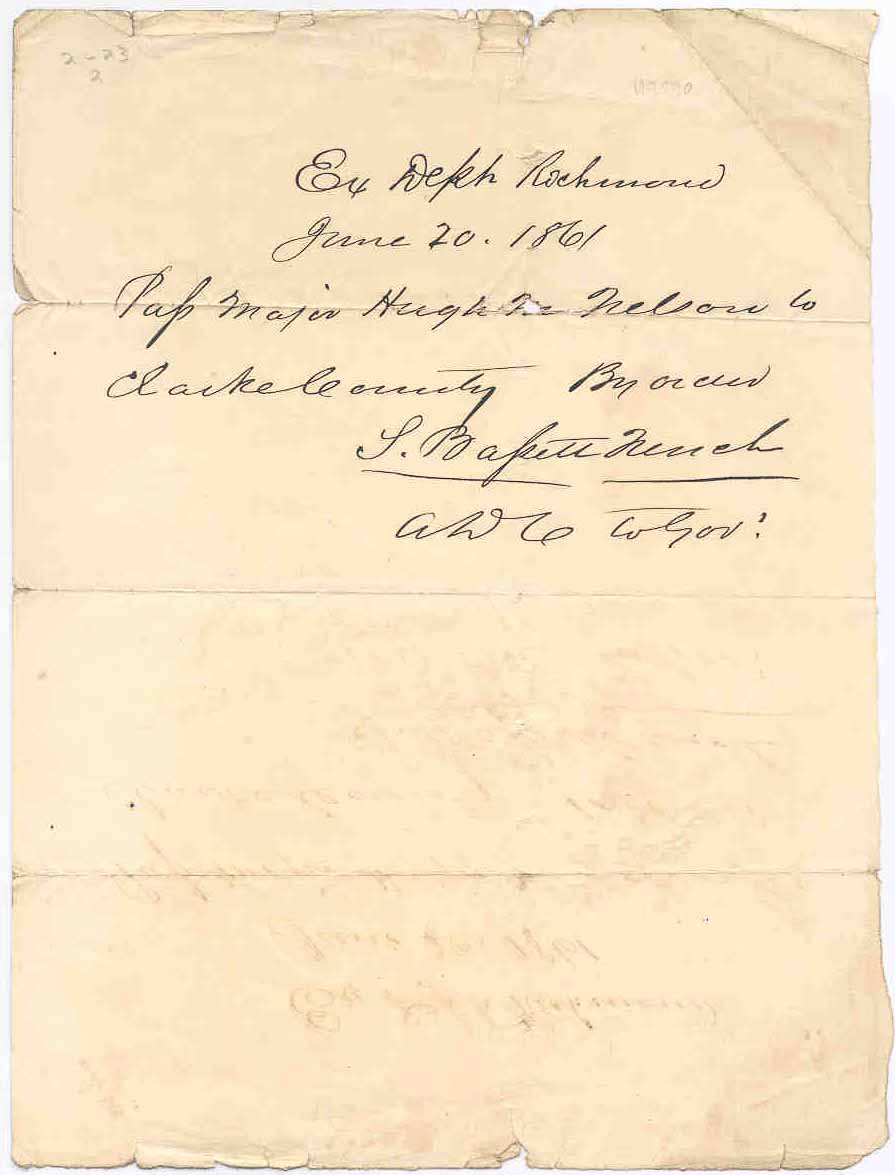 2-23
2
Ex Dept Richmond
June 20. 1861
Pass Major Hugh M Nelson to
Clarke County By order
S. Bassett French
ADC to Gov.